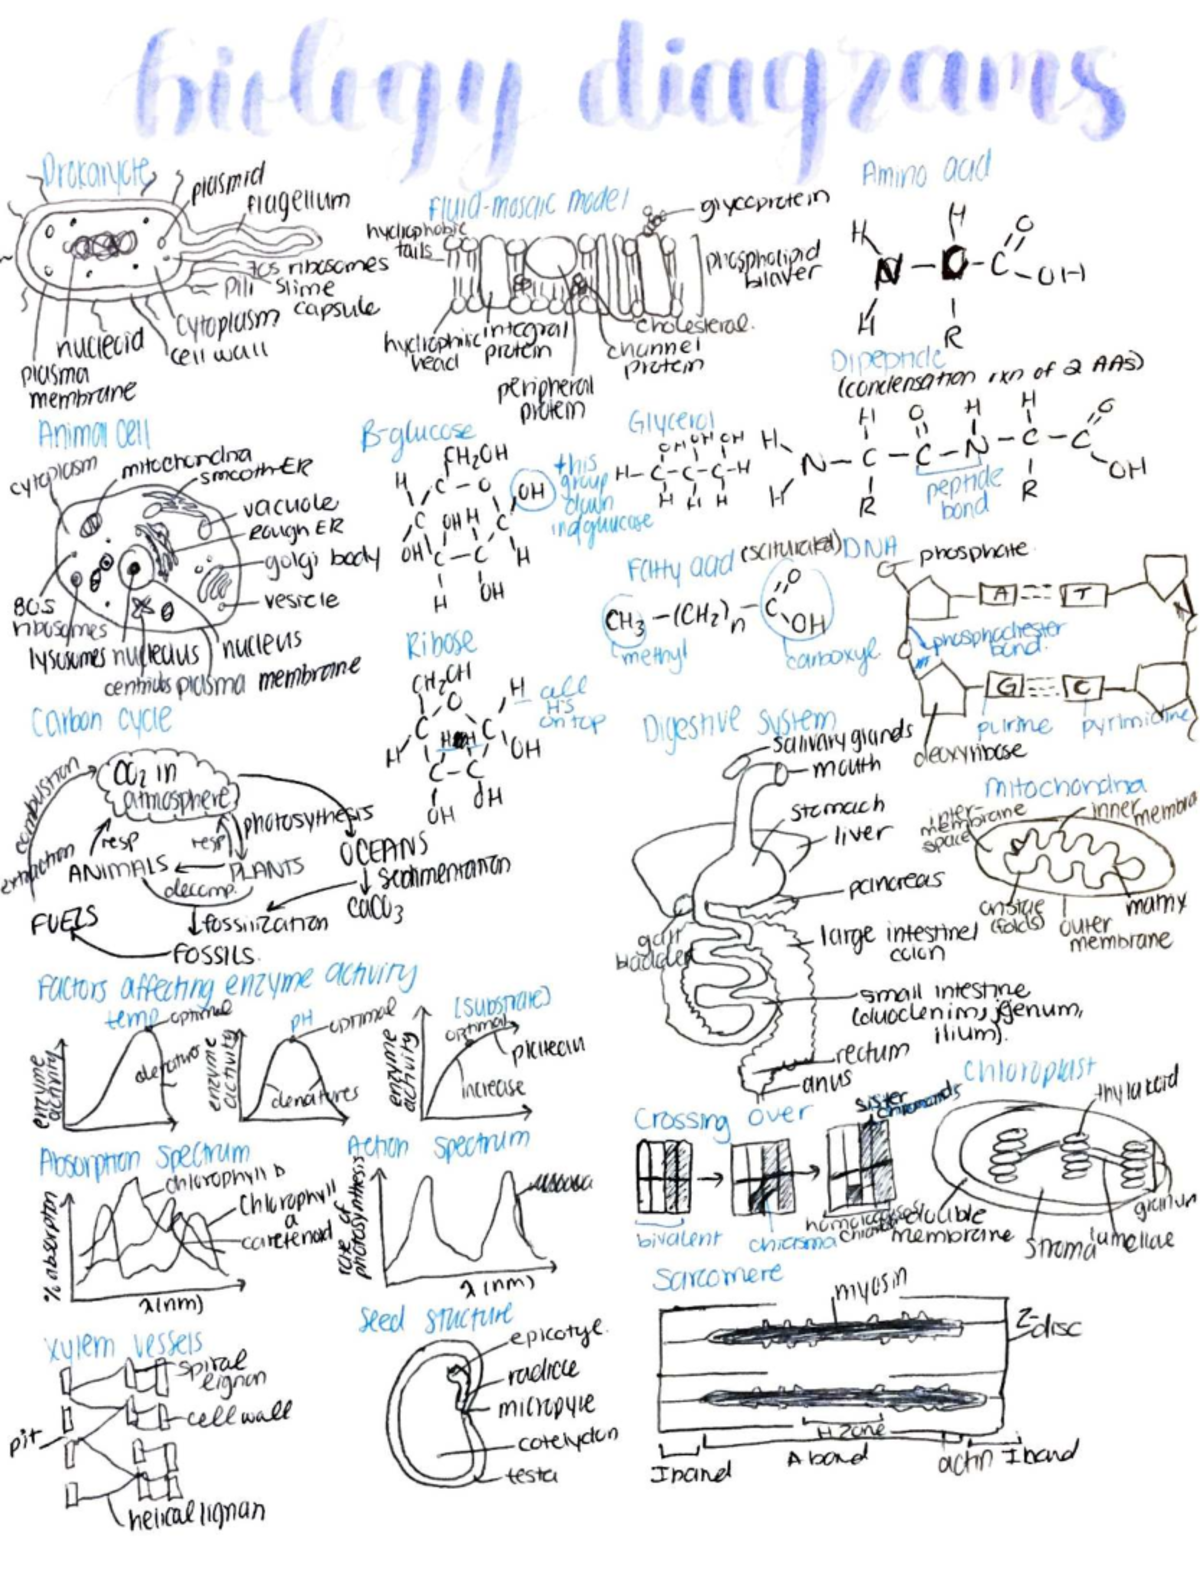 biology diagrams
Prokaryote
plasmid
flagellum
70s ribosomes
pili
slime
capsule
cytoplasm
cell wall
nucleoid
plasma
membrane
Fluid-mosaic model
glycoprotein
hydrophobic
tails
phospholipid
bilayer
hydrophilic
head
integral
protein
peripheral
protein
channel
protein
cholesterol.
Amino acid
H
H
O
N
C
C
OH
H
R
Dipeptide
(condensation rxn of 2 AAs)
H
H
O
H
H
O
N
C
C
N
C
C
OH
H
R
R
peptide
bond
Animal cell
cytoplasm
mitochondria
smooth ER
vacuole
Rough ER
golgi body
vesicle
80S
ribosomes
lysosomes
nucleus
centriols
plasma membrane
B-glucose
CH2OH
H
C
O
OH
C
OH H
C
OH
C
C
H
H
OH
this
group
down
in
glucose
Glycerol
OH OH OH
H-C-C-C-H
H H H
Fatty acid (saturated)
CH3-(CH2)n-C
O
OH
methyl
carboxyl
DNA
phosphate
A
T
phosphodiester
bond.
G
C
purine
pyrimidine
deoxyribose
Ribose
CH2OH
O
H
C
C
H
OH
C-C
OH
OH
all
H's
on top
Carbon cycle
CO2 in
atmosphere
combustion
extraction
resp
resp
photosythesis
ANIMALS
PLANTS
OCEANS
decomp.
sedimentation
CaCO3
FUELS
fossilization
FOSSILS.
Digestive system
salivary glands
mouth
stomach
liver
pancreas
gall
bladder
large intestine/
colon
small intestine
rectum
anus
Mitochondria
inter-
membrane
space
inner
membra
cristae
(folds)
outer
membrane
matrix
Factors affecting enzyme activity
temp
optimal
enzyme
activity
pH
optimal
enzyme
activity
denatures
[substrate]
optimal
enzyme
activity
increase
Absorption spectrum
chlorophyll b
chlorophyll
a
% absorption
λ(nm)
Action spectrum
rate of
photosynthesis
λ(nm)
Crossing over
sister
bivalent
chiasma
Chloroplast
thylakoid
double
membrane
stroma
lamellae
granum
Xylem vessels
spiral
lignan
cell wall
pit
helical lignan
Seed stucture
epicotyl.
radicle
micropyle
cotelydon
testa
Sarcomere
myosin
Z-disc
H zone
I band
A band
actin
I band